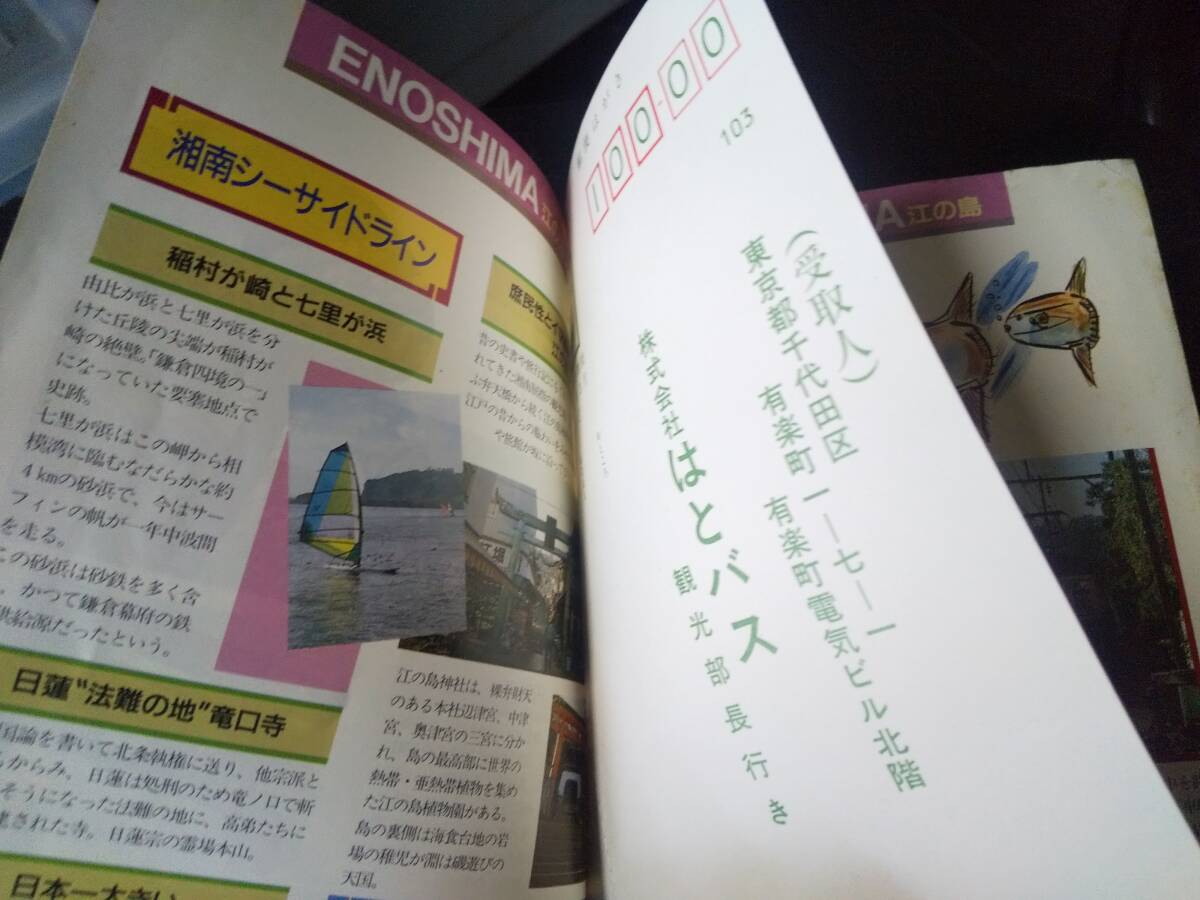 ENOSHIMA
湘南シーサイドライン
稲村が崎と七里が浜
由比が浜と七里が浜を分
けた丘陵の尖端が稲村が
崎の絶壁。「鎌倉四境の一」
になっていた要塞地点で
史跡。
七里が浜はこの岬から相
模湾に臨むなだらかな約
4kmの砂浜で、今はサー
フィンの帆が一年中波間
を走る。
この砂浜は砂鉄を多く含
、かつて鎌倉幕府の鉄
供給源だったという。
日蓮“法難の地”竜口寺
国論を書いて北条執権に送り、他宗派と
らからみ。日蓮は処刑のため竜ノ口で斬
そうになった法難の地に、高弟たちに
建された寺。日蓮宗の霊場本山。
日本一
庶民性と
江の島神社は、裸弁財天
のある本社辺津宮、中津
宮、奥津宮の三宮に分か
れ、島の最高部に世界の
熱帯・亜熱帯植物を集め
た江の島植物園がある。
島の裏側は海食台地の岩
場の稚児が淵は磯遊びの
天国。
郵便はがき
100-00
103
(受取人)
東京都千代田区
有楽町一―七―一
有楽町電気ビル北階
株式会社はとバス
観光部長行き
A江の島